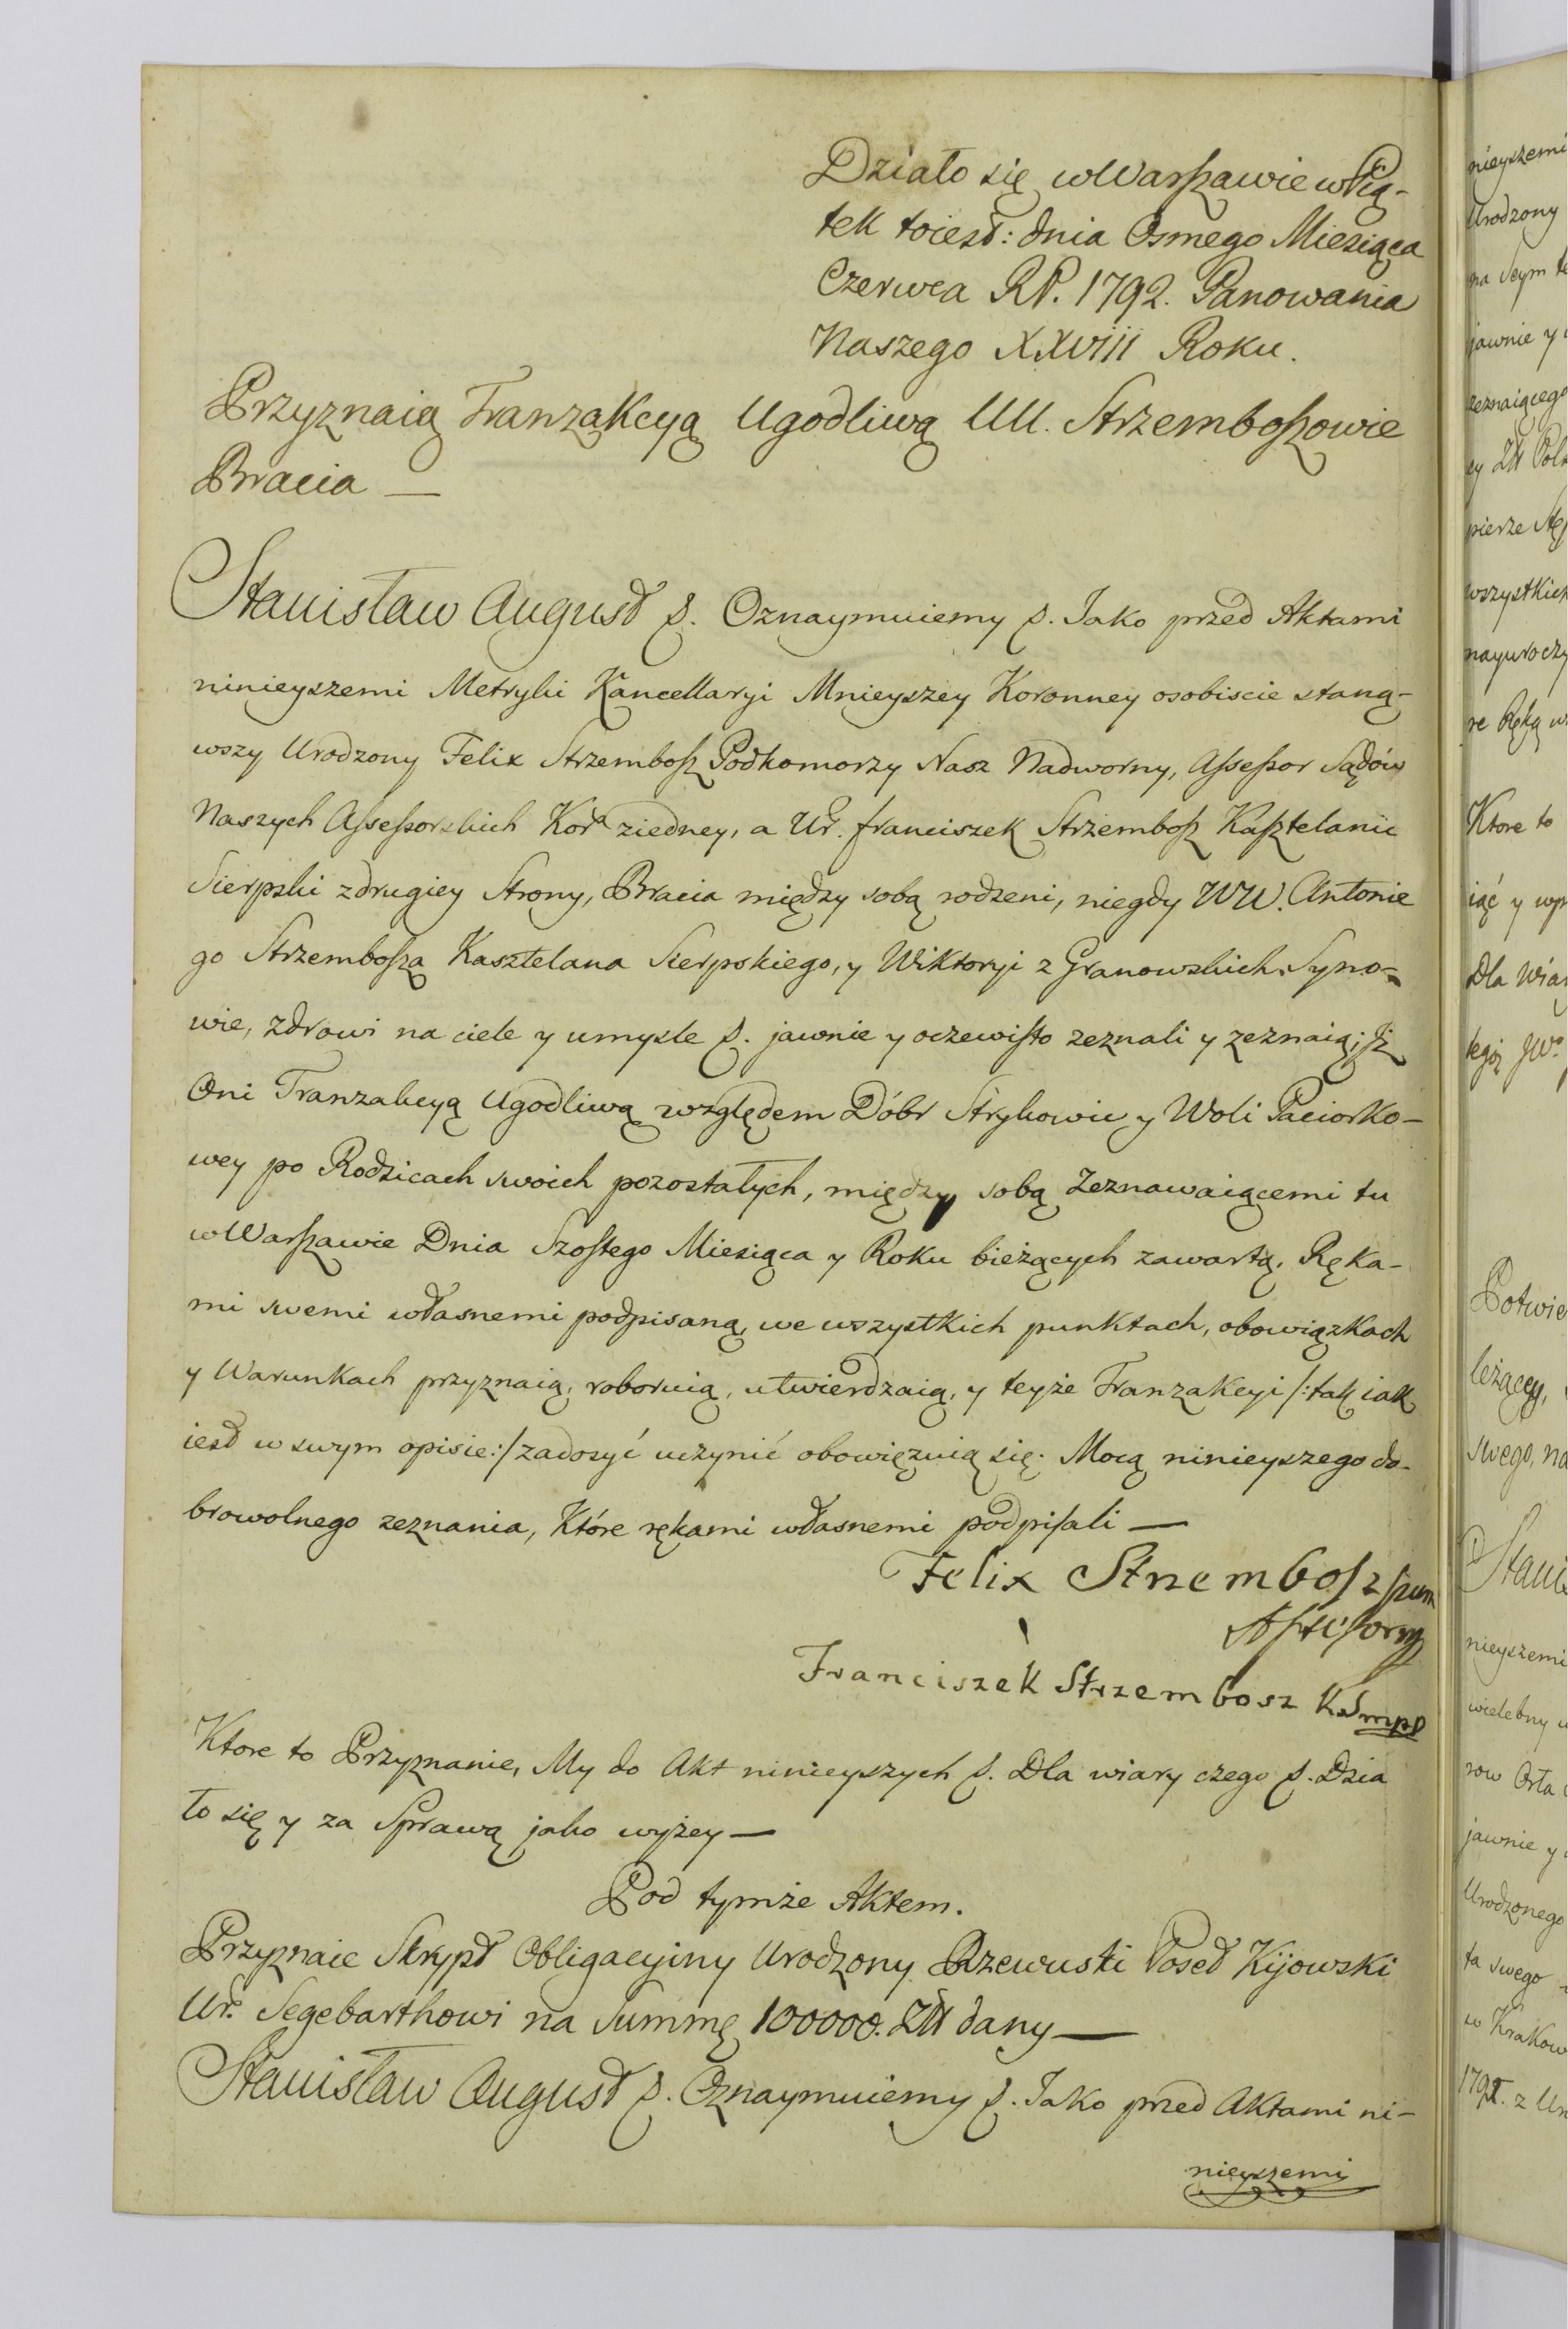 Działo się w Warszawie w Pią-
tek toiest: dnia Osmego Miesiąca
Czerwca RP. 1792. Panowania
Naszego XXVIII Roku.
Przyznaią Tranzakcyą Ugodliwą UU. Strzemboszowie
Bracia —
Stanisław August &. Oznaymuiemy &. Jako przed Aktami
ninieyszemi Metryki Kancellaryi Mnieyszey Koronney osobiscie staną-
wszy Urodzony Felix Strzembosz Podkomorzy Nasz Nadworny, Assessor Sądów
Naszych Assessorskich Kor. ziedney, a Ur. franciszek Strzembosz Kasztelanic
Sierpski zdrugiey Strony, Bracia między sobą rodzeni, niegdy WW. Antonie
go Strzembosza Kasztelana Sierpskiego, y Wiktoryi z Granowskich Syno-
wie, zdrowi na ciele y umysle &. jawnie y oczewisto zeznali y zeznaią; Jż
Oni Tranzakcyą Ugodliwą względem Dóbr Strykowic y Woli Paciorko-
wey po Rodzicach swoich pozostałych, między sobą Zeznawaiącemi tu
w Warszawie Dnia Szostego Miesiąca y Roku bieżących zawartą, Ręka-
mi swemi własnemi podpisaną, we wszystkich punktach, obowiązkach
y Warunkach przyznaią, roboruią, utwierdzaią, y teyże Tranzakcyi /:tak iak
iest w swym opisie:/ zadosyć uczynić obowięzuią się. Mocą ninieyszego do-
browolnego zeznania, Które rękami własnemi podpisali —
Felix Strzembosz
Franciszek Strzembosz KS mpp
Ktore to Przyznanie, My do Akt ninieyszych &. Dla wiary czego &. Dzia
ło się y za Sprawą jako wyżey —
Pod tymże Aktem.
Przyznaie Skrypt Obligacyiny Urodzony Rzewuski Poseł Kijowski
Ur. Segebarthowi na Summę 100000. Złł dany —
Stanisław August &. Oznaymuiemy &. Jako przed Aktami ni-
nieyszemi
nieyszemi
Urodzony
na Seym
jawnie y
zeznaiącego
cy Złł Pols
pierze
wszystkich
nayuroczy
re Ręką w
Ktore to
iąc y wpi
Dla wiar
tegoż JW
Potwie
leżącey,
swego, na
Stanis
nieyszemi
wielebny
row Orła
jawnie y
Urodzonego
ta swego
w Krakow
179 . z Ur